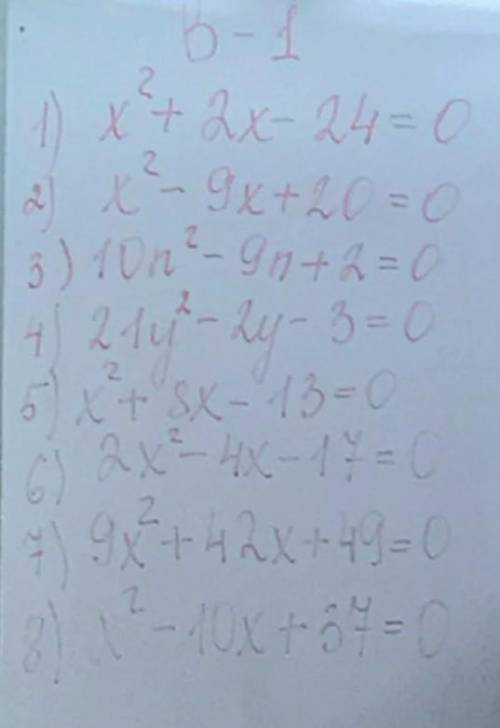 В-1
1) x² + 2x - 24 = 0
2) x² - 9x + 20 = 0
3) 10n² - 9n + 2 = 0
4) 21y² - 2y - 3 = 0
5) x² + 8x - 13 = 0
6) 2x² - 4x - 17 = 0
7) 9x² + 42x + 49 = 0
8) x² - 10x + 37 = 0